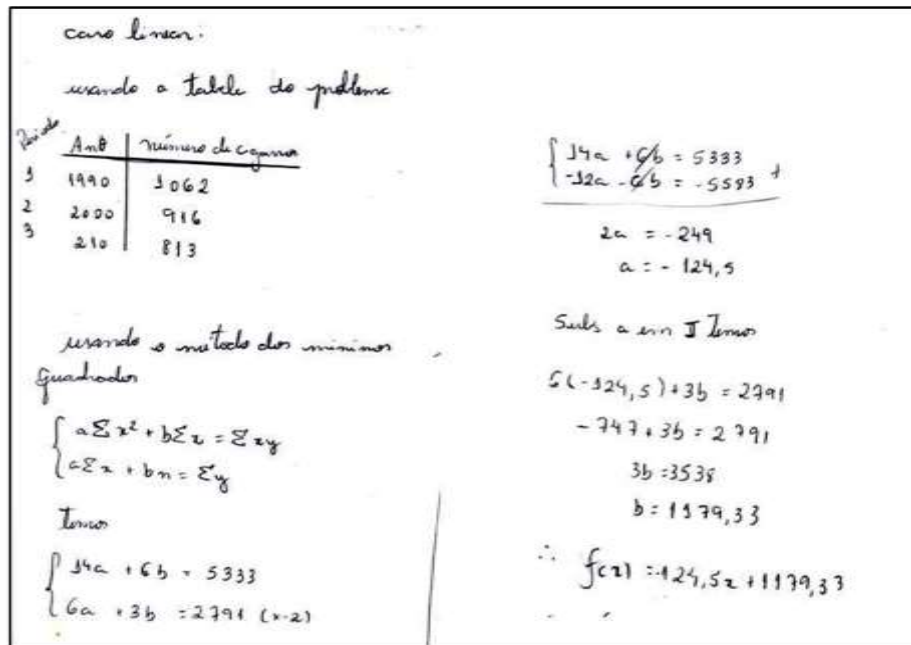 caso linear:
usando a tabela do problema
Período
Ano número de cigarros
1 1990 1062
2 2000 916
3 210 813
usando o método dos mínimos
quadrados
{ aΣx² + bΣx = Σxy
{ aΣx + bn = Σy
Temos
{ 14a + 6b = 5333
{ 6a + 3b = 2791 (x-2)
{ 14a + 6b = 5333
-12a - 6b = -5583 +
2a = -249
a = -124,5
Subs a em II Temos
6(-124,5) + 3b = 2791
-747 + 3b = 2791
3b = 3538
b = 1179,33
∴ f(x) = -124,5x + 1179,33